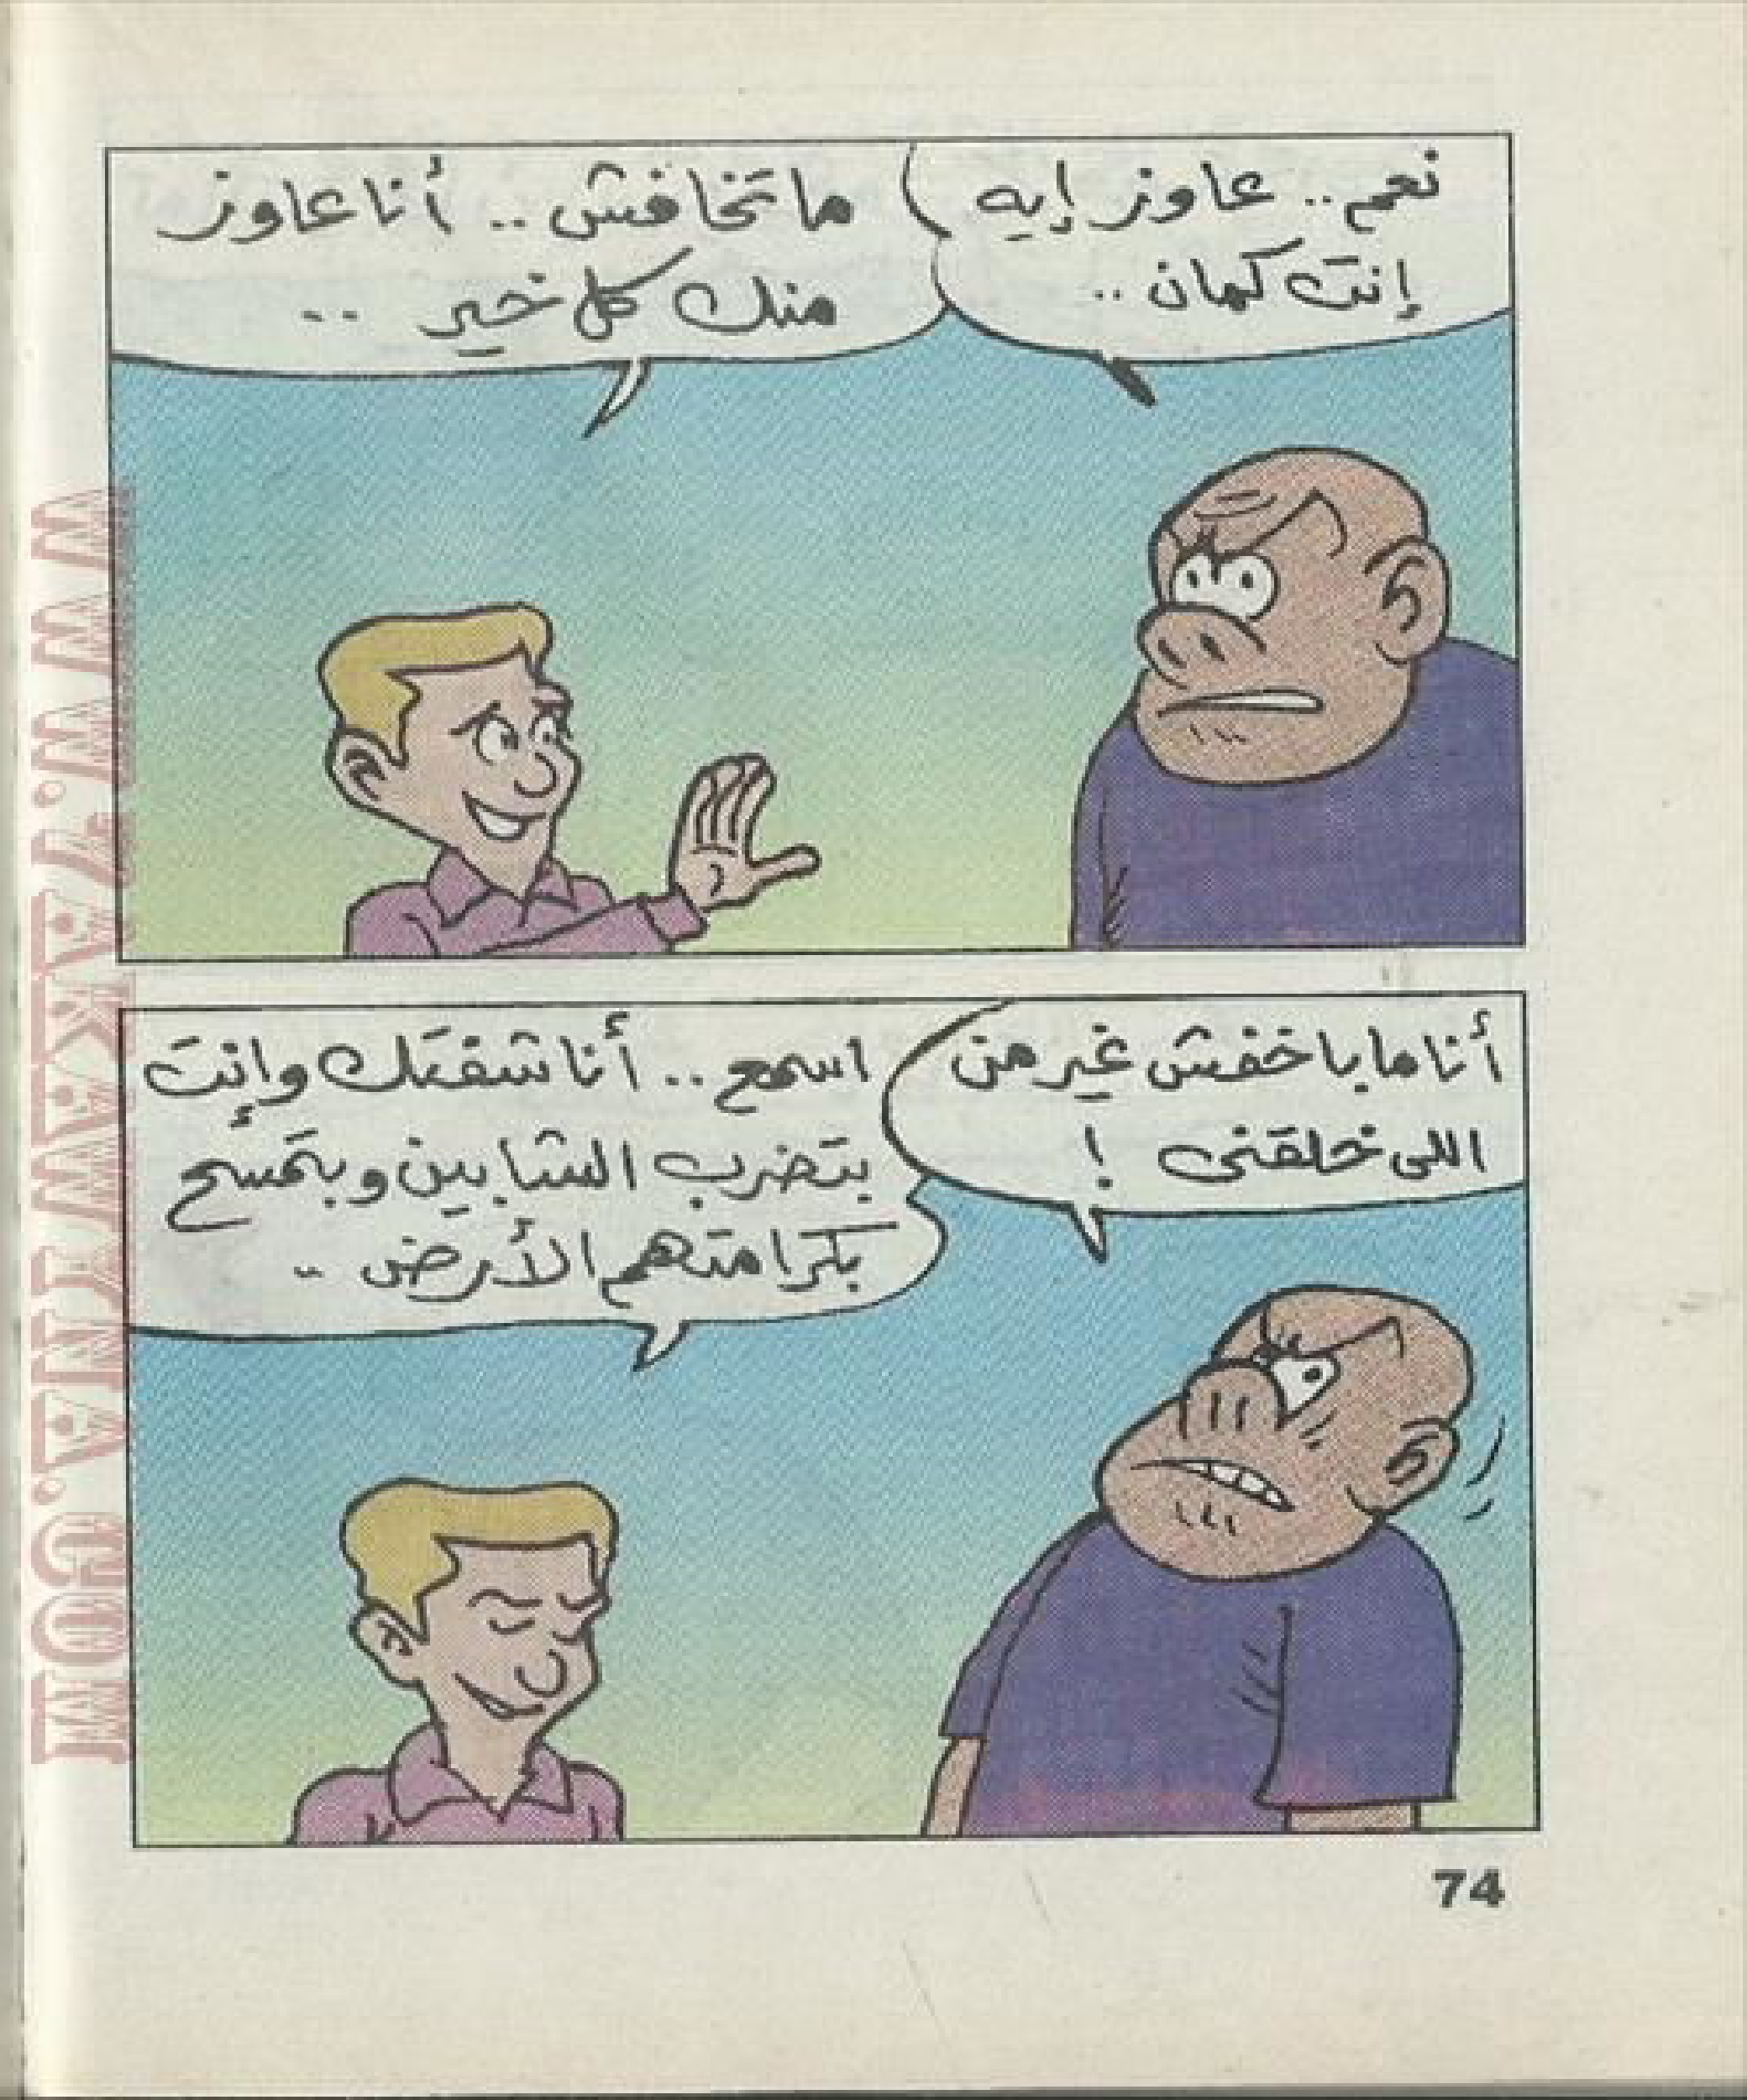 نعم.. عاوز إيه
إنت كمان..
ما تخافش.. أنا عاوز
منك كل خير ..
أنا ما باخفش غير من
اللى خلقنى !
اسمع.. أنا شفتك وإنت
بتضرب الشابين وبتمسح
بكرامتهم الأرض ..
74